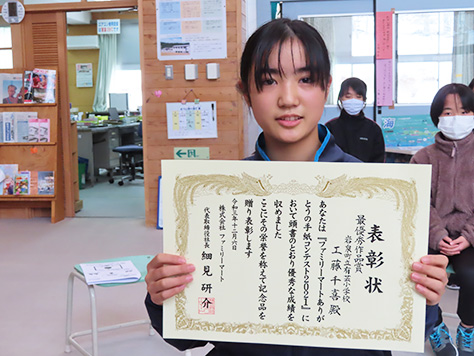 表彰状
最優秀作品賞
岩泉町立有芸小学校
工藤千喜 殿
あなたは「ファミリーマートありが
とうの手紙コンテスト2021」に
おいて頭書のとおり優秀な成績を
収めました
ここにその栄誉を称えて記念品を
贈り表彰します
令和三年十二月六日
株式会社ファミリーマート
代表取締役社長 細見研介